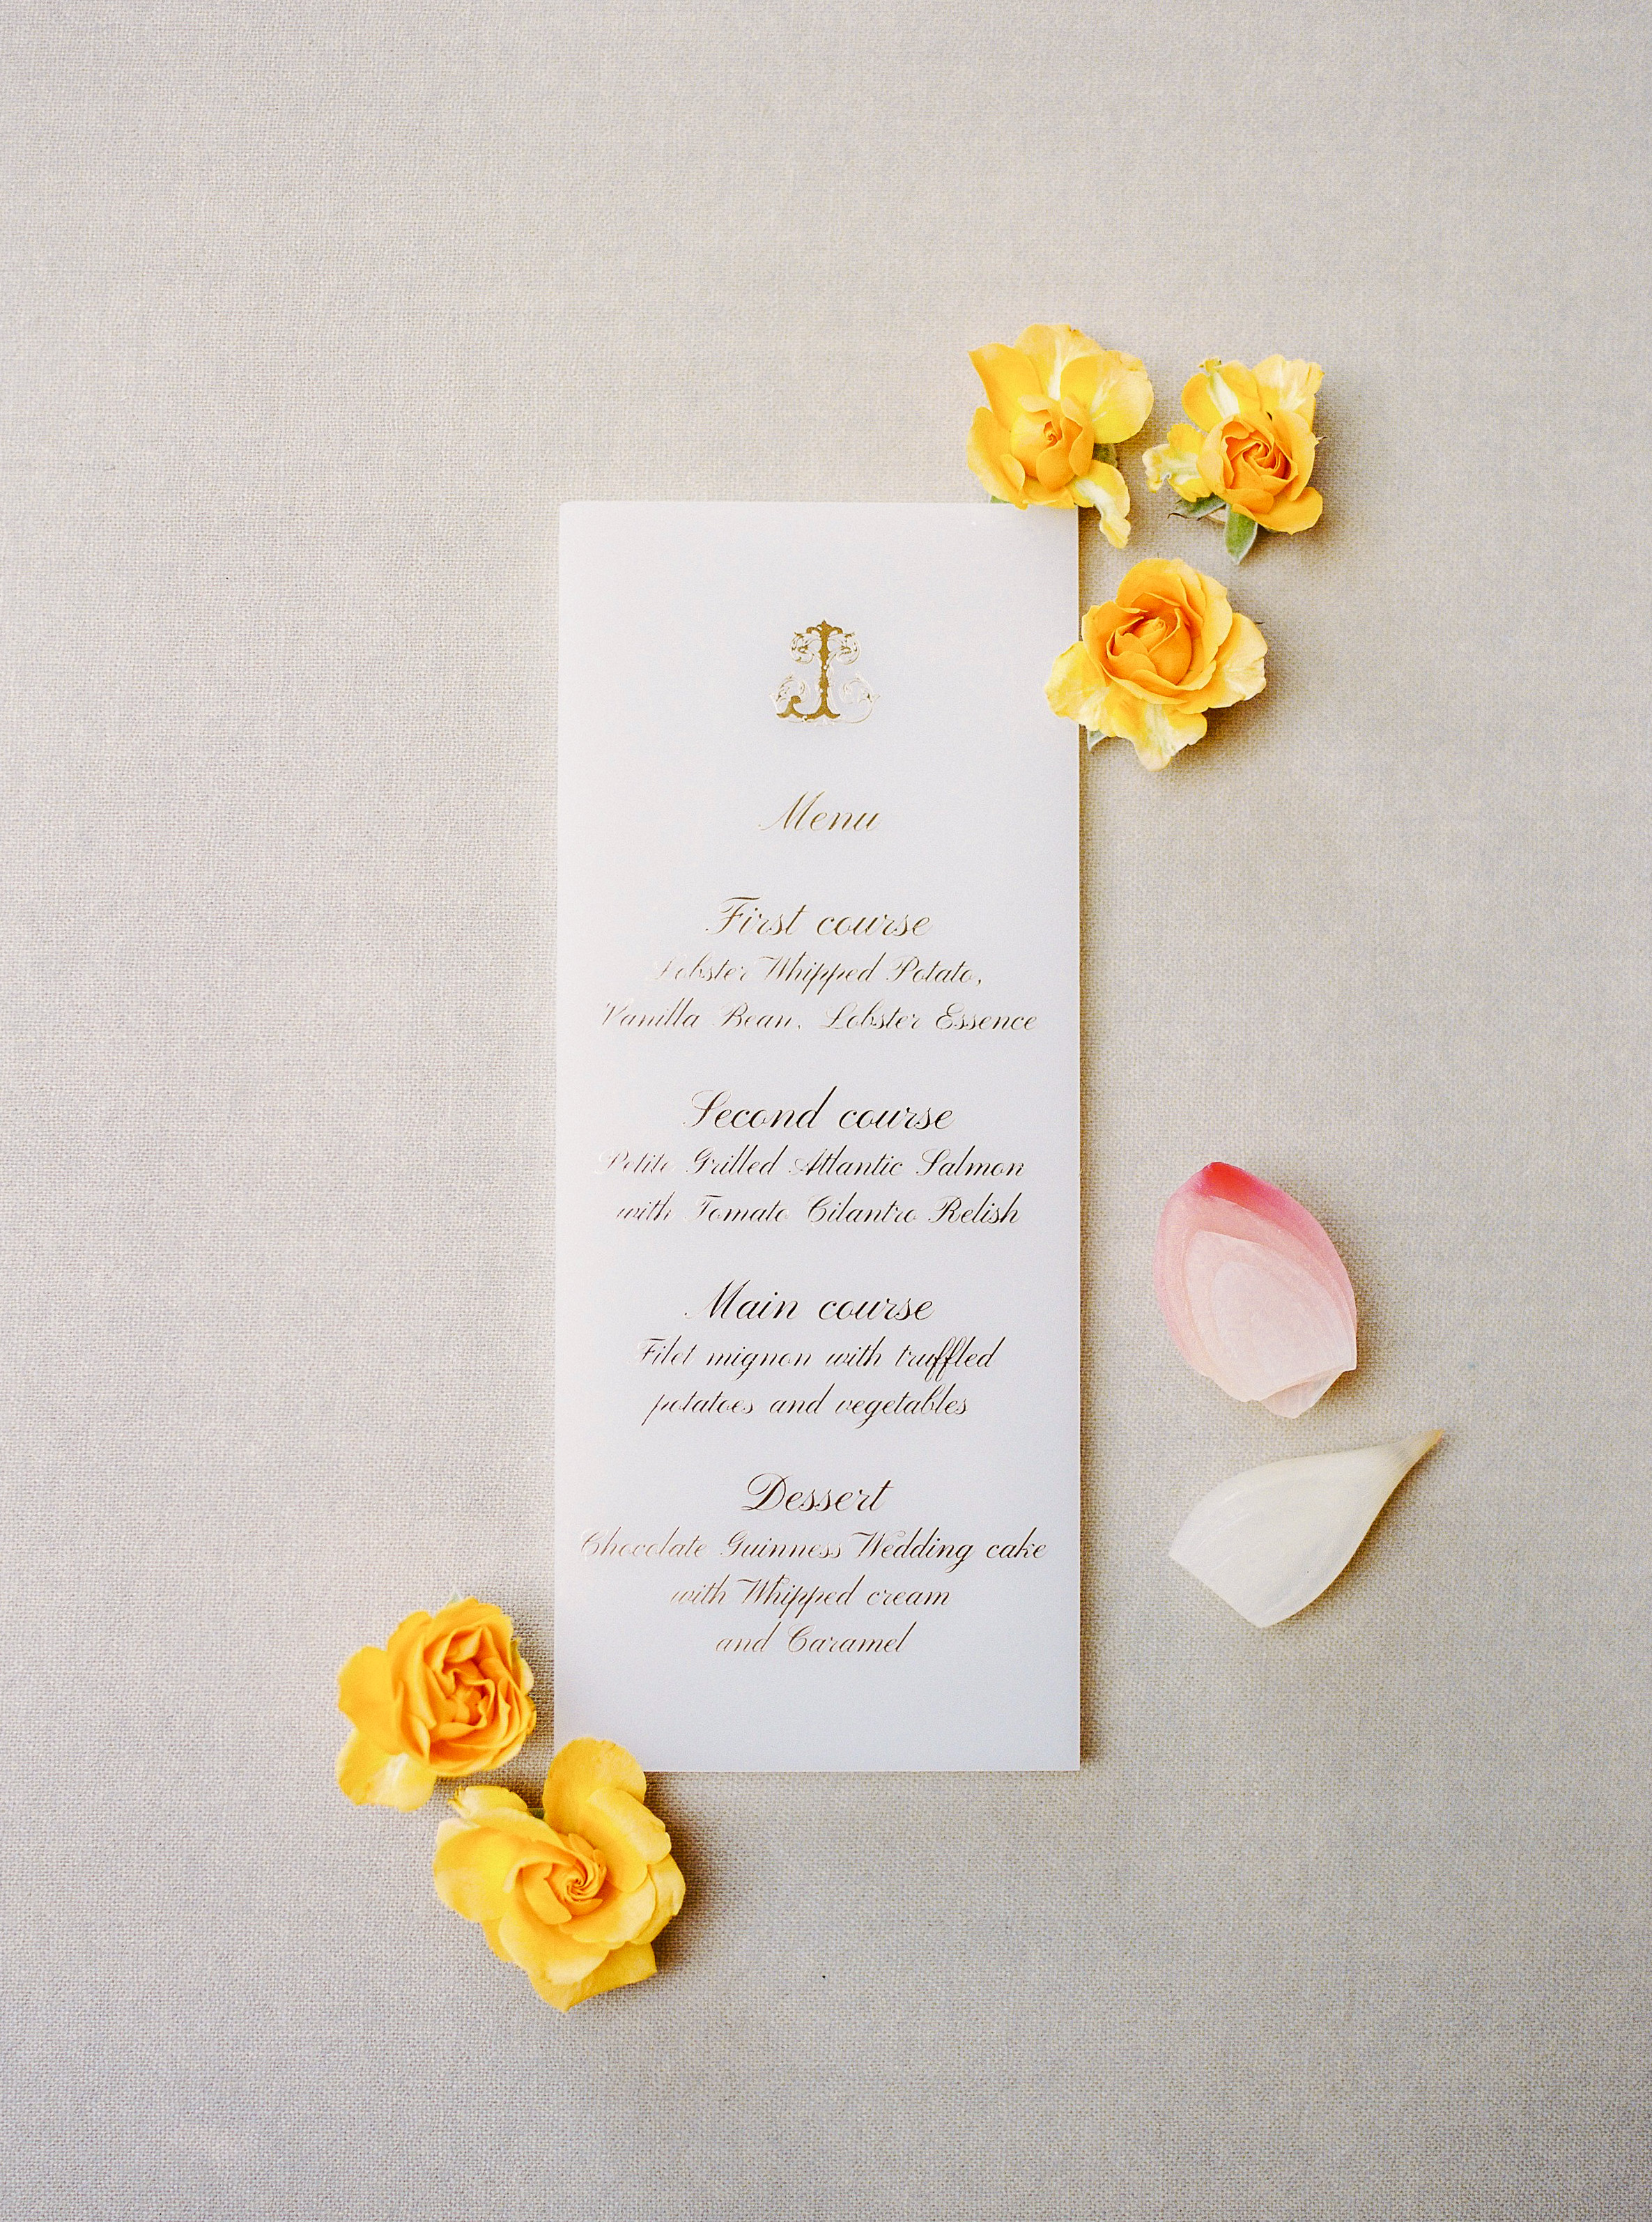 Menu
First course
Lobster Whipped Potato,
Vanilla Bean, Lobster Essence
Second course
Petite Grilled Atlantic Salmon
with Tomato Cilantro Relish
Main course
Filet mignon with truffled
potatoes and vegetables
Dessert
Chocolate Guinness Wedding cake
with Whipped cream
and Caramel